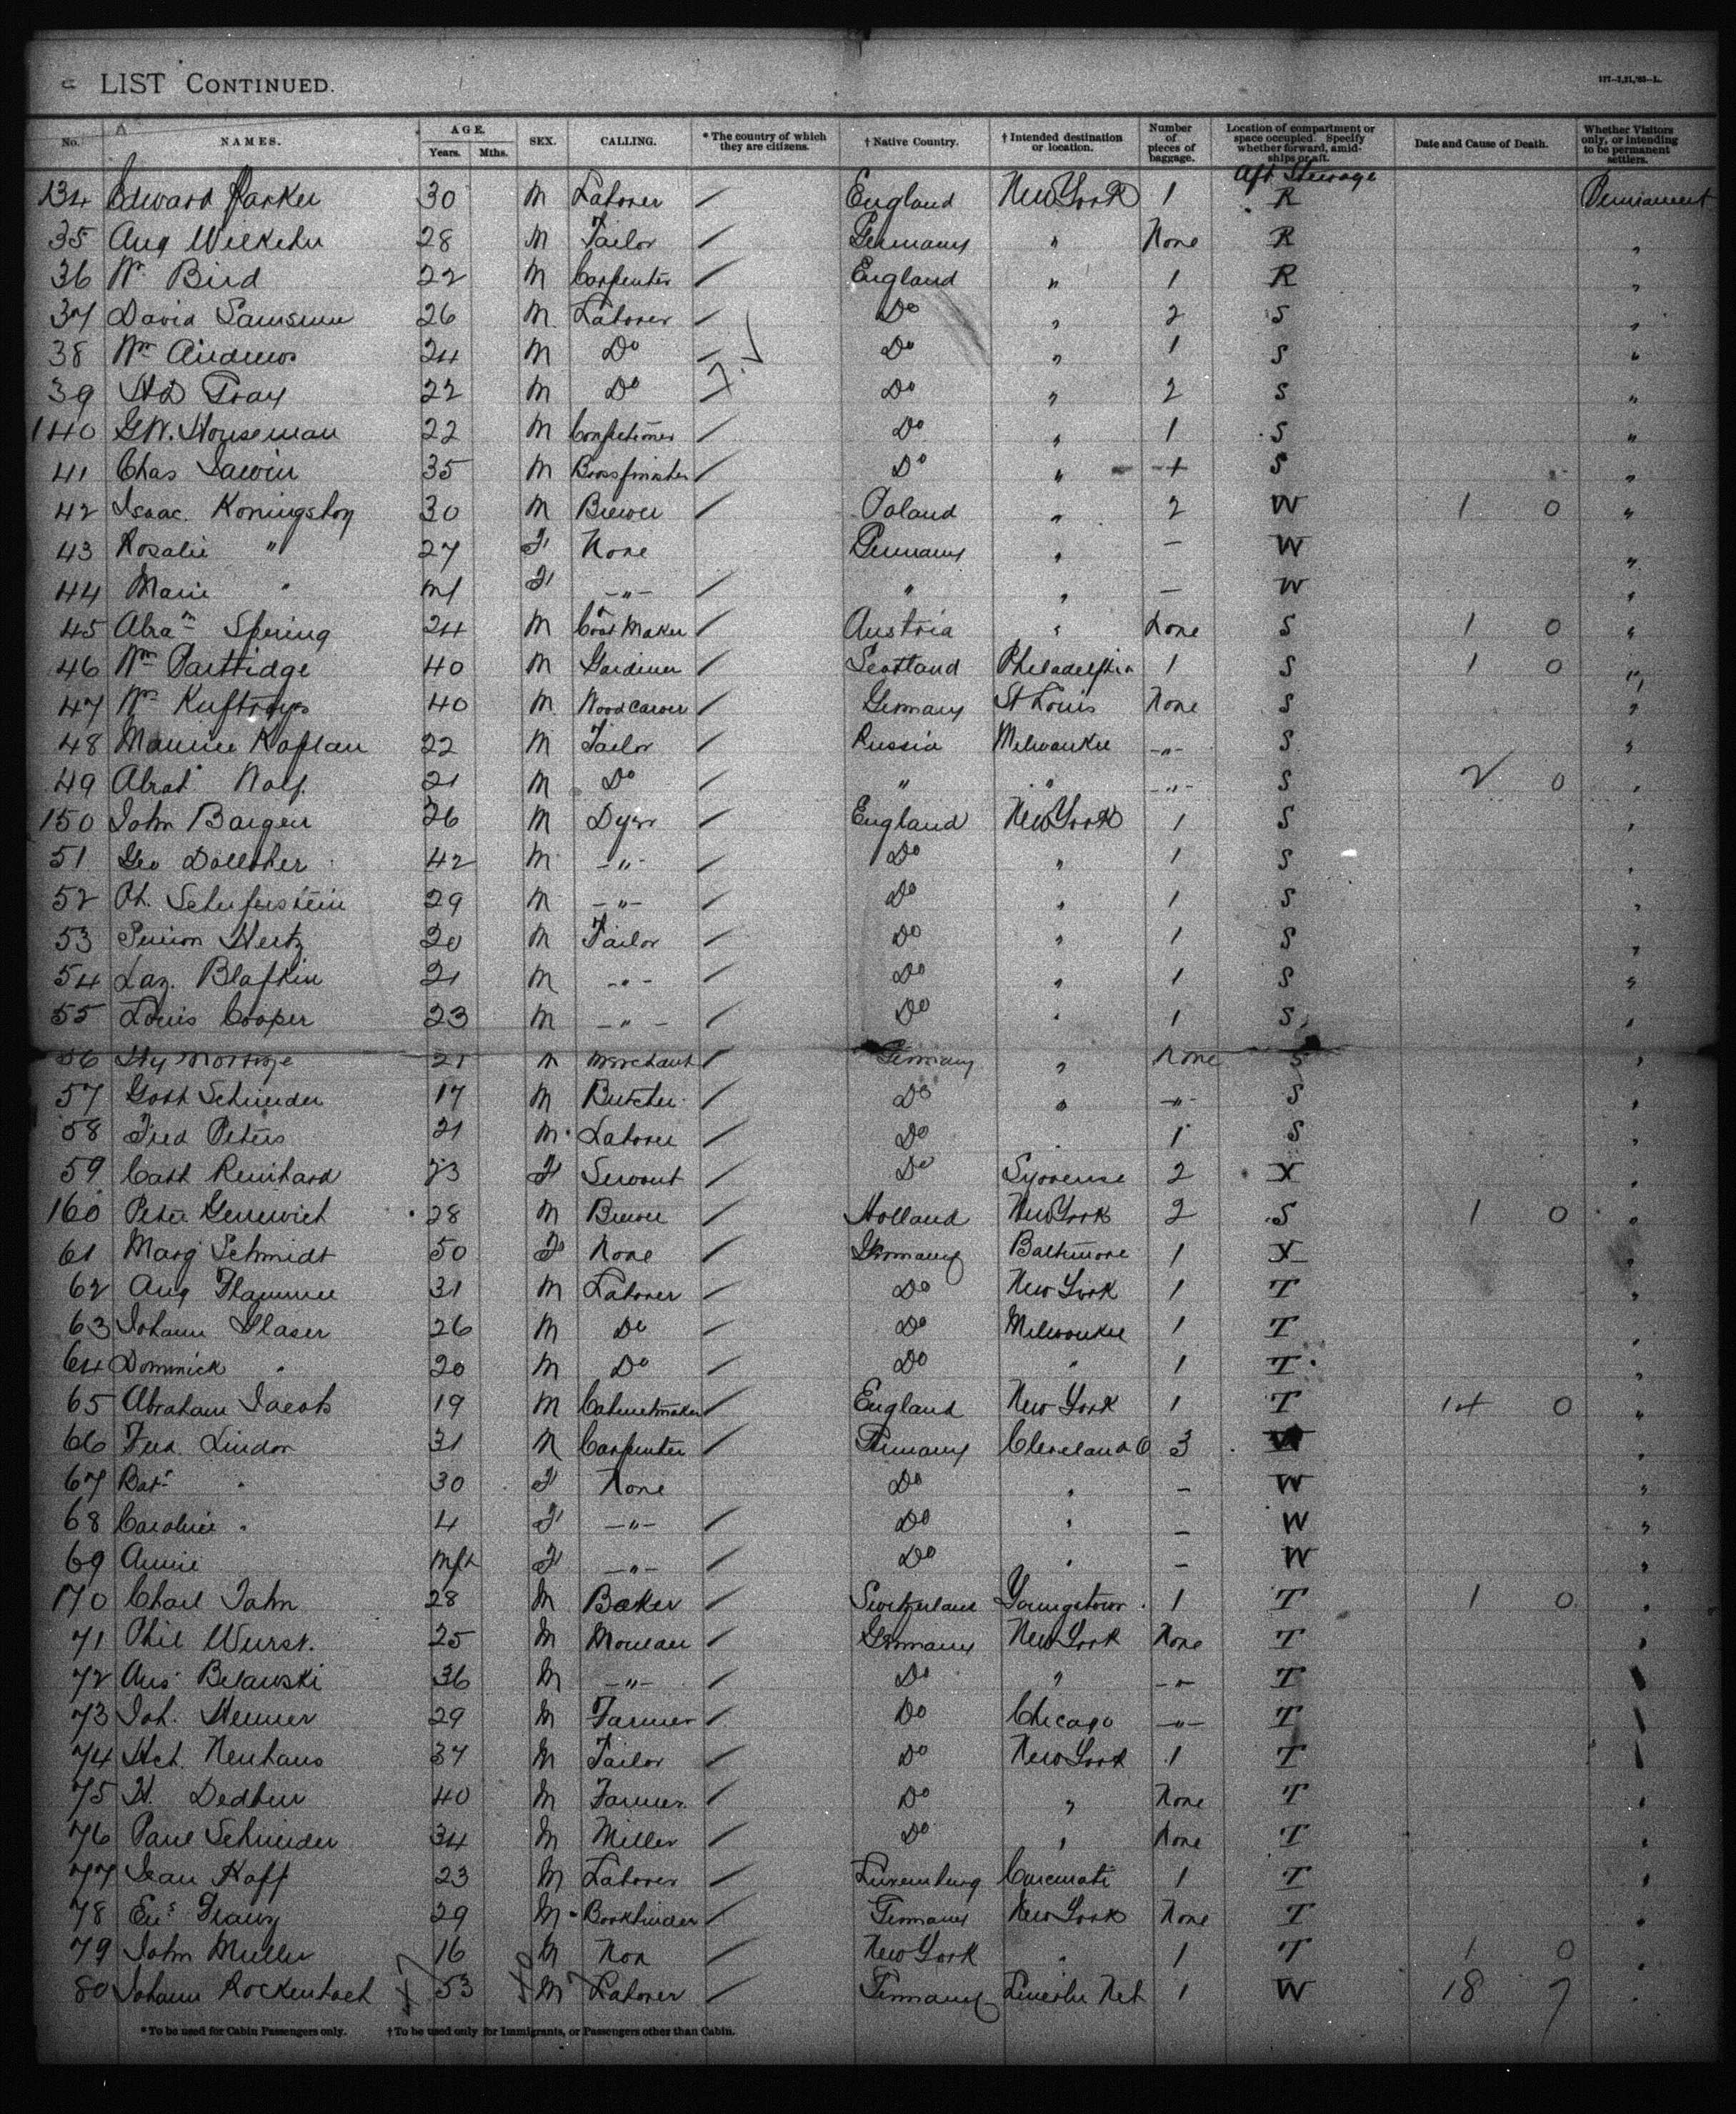 LIST CONTINUED.
No. NAMES. AGE. Years. Mths. SEX. CALLING. * The country of which they are citizens. † Native Country. † Intended destination or location. Number of pieces of baggage. Location of compartment or space occupied. Specify whether forward, amidships or aft. Date and Cause of Death. Whether Visitors only, or intending to be permanent settlers.
Aft Steerage
134 Edward Parker 30 M Laborer / England New York 1 R Permanent
35 Aug 28 M Tailor / Germany " None R "
36 Wm Bird 22 M Carpenter / England " 1 R "
37 David 26 M Laborer / Do " 2 S "
38 Wm Andrews 24 M Do / Do " 1 S "
39 22 M Do / Do " 2 S "
140 G.W. Houseman 22 M Confectioner / Do " 1 S "
41 Chas 35 M Brassfinisher / Do " 1 S "
42 Isaac 30 M Brewer / Poland " 2 W 1 0 "
43 Rosalie " 27 F None Germany " - W "
44 Marie " F -"- / " " - W "
45 Abram Spering 24 M Coat Maker / Austria " None S 1 0 "
46 Wm Parttidge 40 M Gardiner / Scotland Philadelphia 1 S 1 0 "
47 Wm 40 M Woodcarver / Germany St Louis None S "
48 Maurice Kaplan 22 M Tailor / Russia Milwaukee -"- S "
49 21 M Do / " " -"- S 2 0 "
150 John 26 M Dyer / England New York 1 S "
51 Geo 42 M -"- / Do " 1 S "
52 29 M -"- / Do " 1 S "
53 Hertz 20 M Tailor / Do " 1 S "
54 Laz. Blafkin 21 M -"- / Do " 1 S "
55 Louis Cooper 23 M -"- / Do " 1 S "
56 Hy 21 M Merchant / Germany " None S "
57 Gott 17 M Butcher / Do " -"- S "
58 Fred Peters 21 M Laborer / Do " 1 S "
59 Cath Reinhard 23 F Servant / Do 2 X "
160 Peter 28 M Brewer / Holland New York 2 S 1 0 "
61 Marg Schmidt 50 F None / Germany Baltimore 1 X "
62 Aug 31 M Laborer / Do New York 1 T "
63 Johann Glaser 26 M Do / Do Milwaukee 1 T "
64 Dominick " 20 M Do / Do " 1 T "
65 Abraham Jacobs 19 M Cabinetmaker / England New York 1 T 14 0 "
66 Ferd. Lindor 31 M Carpenter / Germany Cleveland O 3 W "
67 " 30 F None Do " - W "
68 Caroline " 4 F -"- / Do " - W "
69 Annie F -"- / Do " - W "
170 Jahn 28 M Baker / Switzerland Youngstown 1 T 1 0 "
71 Phil Wurst. 25 M / Germany New York None T "
72 36 M -"- / Do " -"- T "
73 Joh. 29 M Farmer / Do Chicago -"- T "
74 Neuhaus 37 M Tailor / Do New York 1 T "
75 H. 40 M Farmer / Do " None T "
76 Paul Schneider 34 M Miller / Do " None T "
77 Jean Hoff 23 M Laborer / Luxemburg 1 T "
78 29 M Bookbinder / Germany New York None T "
79 John Muller 16 M Non / New York " 1 T 1 0 "
80 Johann Rockenbach 53 M Laborer / Germany Lincoln Neb 1 W 18 7 "
* To be used for Cabin Passengers only. † To be used only for Immigrants, or Passengers other than Cabin.